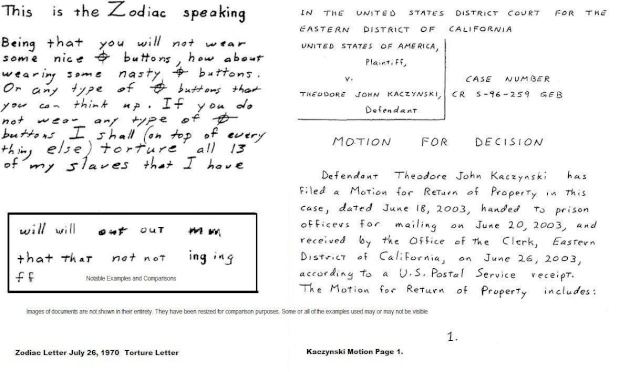 This is the Zodiac speaking
Being that you will not wear
some nice ⌖ buttons, how about
wearing some nasty ⌖ buttons.
Or any type of ⌖ buttons that
you can think up. If you do
not wear any type of ⌖
buttons I shall (on top of every
thing else) torture all 13
of my slaves that I have
will will out out mm
that that not not ing ing
f f
Notable Examples and Comparisons
IN THE UNITED STATES DISTRICT COURT FOR THE
EASTERN DISTRICT OF CALIFORNIA
UNITED STATES OF AMERICA,
Plaintiff,
v.
CASE NUMBER
THEODORE JOHN KACZYNSKI,
CR S-96-259 GEB
Defendant
MOTION FOR DECISION
Defendant Theodore John Kaczynski has
filed a Motion for Return of Property in this
case, dated June 18, 2003, handed to prison
officers for mailing on June 20, 2003, and
received by the Office of the Clerk, Eastern
District of California, on June 26, 2003,
according to a U.S. Postal Service receipt.
The Motion for Return of Property includes:
1.
Images of documents are not shown in their entirety. They have been resized for comparison purposes. Some or all of the examples used may or may not be visible
Zodiac Letter July 26, 1970 Torture Letter
Kaczynski Motion Page 1.